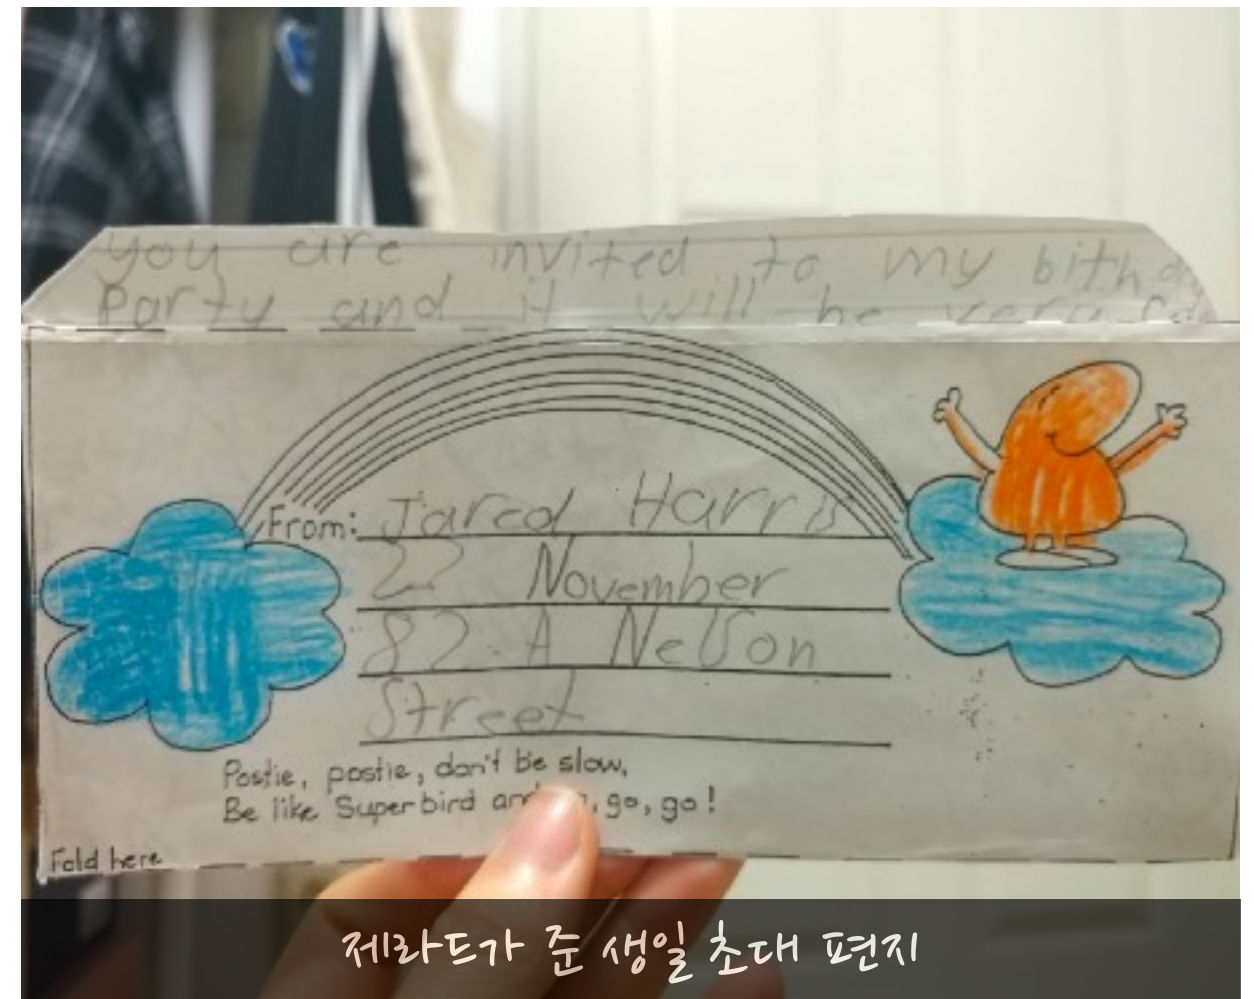 you are invited to my bithday
Party and it will be very
From: Jared Harris
22 November
82 A Nelson
Street
Postie, postie, don't be slow,
Be like Superbird and go, go!
Fold here
제라드가 준 생일 초대 편지